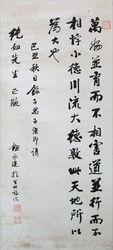 萬物並育而不相害道並行而不
相悖小德川流大德敦化此天地所以
為大也
己丑秋日錄子思子語即請
純如先生 正腕